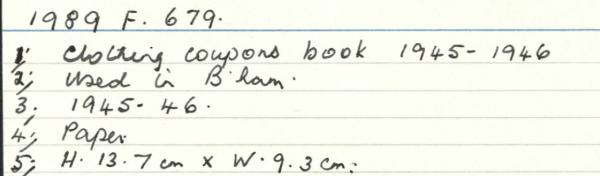 1989 F. 679.
1; Clothing coupons book 1945-1946
2; Used in B'ham.
3. 1945-46.
4; Paper
5; H. 13.7 cm x W. 9.3 cm.